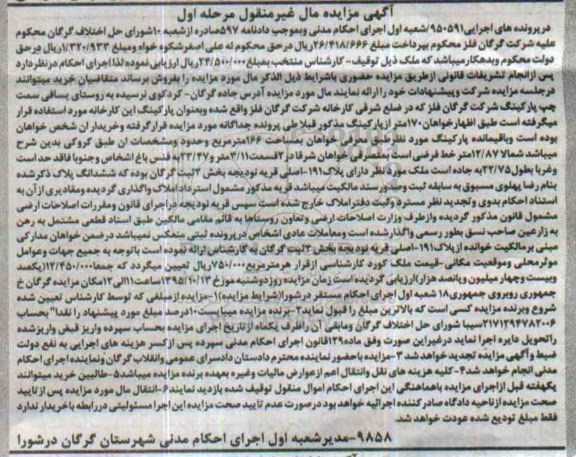 آگهی مزایده مال غیرمنقول مرحله اول
درپرونده های اجرایی ۹۵۰۵۹۱/شعبه اول اجرای احکام مدنی وبموجب دادنامه ۵۹۷صادره از شعبه ۱۰شورای حل اختلاف گرگان محکوم
علیه شرکت گرگان فلز محکوم بپرداخت مبلغ ۲۶/۴۱۸/۶۶۶ریال درحق محکوم له علی اصغرشکوه خواه ومبلغ ۱/۳۲۰/۹۳۳ریال درحق
دولت محکوم وبدهکارمیباشد که ملک ذیل توقیف- کارشناس منتخب بمبلغ ۲۴/۵۰۰/۰۰۰ریال ارزیابی نموده لذا اجرای احکام درنظردارد
پس ازانجام تشریفات قانونی ازطریق مزایده حضوری باشرایط ذیل الذکر مال مورد مزایده را بفروش برساند متقاضیان خرید میتوانند
درجلسه مزایده شرکت وپیشنهادات خود را ارائه نمایند مال مورد مزایده آدرس جاده گرگان- کردکوی نرسیده به روستای یساقی سمت
چپ پارکینگ شرکت گرگان فلز که در ضلع شرقی کارخانه شرکت گرگان فلز واقع شده وبعنوان پارکینگ این کارخانه مورد استفاده قرار
میگرفته است طبق اظهارخواهان ۱۷۰متر از پارکینگ مذکور قبلا طی پرونده جداگانه مورد مزایده قرارگرفته وخریدار ان شخص خواهان
بوده است وباقیمانده پارکینگ مورد نظر طبق معرفی خواهان بمساحت ۱۶۶مترمربع وحدود ومشخصات ان طبق کروکی بدین شرح
میباشد شمالا ۱۲/۸۷متر خط فرضی است به متصرفی خواهان شرقا در۲قسمت۳/۱۱متر و۲۳/۴۷به فنس باغ اشخاص وجنوبا فاقد حد است
وغربا بطول ۲۳/۷۵به جاده است ملک مورد نظر دارای پلاک ۱۹۱-اصلی قریه نودیجه بخش ۳ثبت گرگان بوده که ششدانگ پلاک ذکرشده
بنام رضا پهلوی مسبوق به سابقه ثبت وصدورسند مالکیت میباشد قریه مذکور مشمول استرداد املاک واگذاری گردیده ومقادیری از آن به
استناد احکام بدوی وتجدید نظر مسترد وثبت دفتراملاک خارج شده است سپس قریه نودیجه دراجرای قانون ومقررات اصلاحات ارضی
مشمول قانون مذکور گردیده وازطرف وزارت اصلاحات ارضی وتعاون روستاها به قائم مقامی مالکین طبق اسناد قطعی مشتمل به رهن
به زارعین صاحب نسق بطور رسمی واگذارشده است ومعاملات عادی اشخاص درپرونده ثبتی منعکس نمیباشد درضمن خواهان مدارکی
مبنی برمالکیت خوانده ازپلاک ۱۹۱-اصلی قریه نودیجه بخش ۳ثبت گرگان به کارشناس ارائه نموده است باتوجه به جمیع جهات وعوامل
موثرمحلی وموقعیت مکانی-قیمت ملک کورد کارشناسی ازقرار هرمترمربع ۷۵۰/۰۰۰ریال تعیین میگردد که جمعا ۱۲۴/۵۰۰/۰۰۰(یکصد
وبیست وچهار میلیون وپانصد هزار)ارزیابی گردیده است زمان مزایده روزدوشنبه مورخ ۱۳۹۵/۱۰/۱۳ساعت ۱۱الی ۱۲مکان مزایده گرگان خ
جمهوری روبروی جمهوری ۱۸شعبه اول اجرای احکام مستقر درشورا(شرایط مزایده)۱-مزایده ازمبلغی که توسط کارشناس تعیین شده
شروع وبرنده مزایده کسی است که بالاترین مبلغ را قبول نماید۲-برنده مزایده میبایست ۱۰درصد مبلغ مورد پیشنهاد را نقدا" بحساب
۲۱۷۱۲۹۴۷۸۲۰۰۶سیبا شورای حل اختلاف گرگان ومابقی آن راظرف یکماه ازتاریخ اجرای مزایده بحساب سپرده واریز قبض واریزشده
راتحویل دایره اجرا نماید درغیراین صورت وفق ماده۱۲۹قانون اجرای احکام مدنی سپرده پس ازکسر هزینه های اجرایی به نفع دولت
ضبط وآگهی مزایده تجدید خواهد شد ۳-مزایده باحضور نماینده محترم دادستان دادسرای عمومی وانقلاب گرگان ونماینده اجرای احکام
مدنی انجام خواهد شد۴-کلیه هزینه های نقل وانتقال اعم ازعوارض مالیات وغیره بعهده برنده مزایده میباشد۵-طالبین خرید میتوانند
یکهفته قبل ازاجرای مزایده باهماهنگی این اجرای احکام اموال منقول توقیف شده بازدید نمایند۶-انتقال مال مورد مزایده پس از تایید
صحت مزایده ازناحیه دادگاه صادرکننده اجرائیه خواهد بود درصورت عدم تایید صحت مزایده این اجرا مسئولیتی دررابطه باخریدار ندارد
فقط مبلغ تودیع شده عودت خواهد شد.
۹۸۵۸-مدیرشعبه اول اجرای احکام مدنی شهرستان گرگان درشورا